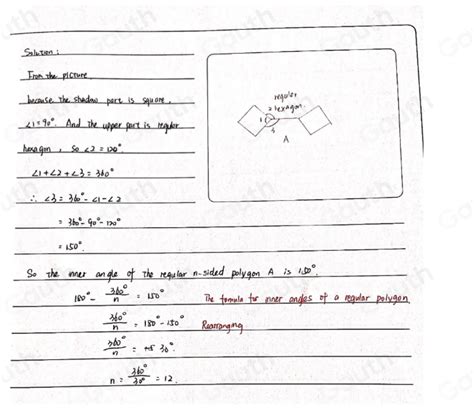 Solution:
From the picture
because the shadow part is square,
∠1=90°. And the upper part is regular
hexagon, so ∠2=120°.
∠1+∠2+∠3=360°
∴ ∠3=360°-∠1-∠2
=360°-90°-120°
=150°.
regular
2 hexagon.
1
A
So the inner angle of the regular n-sided polygon A is 150°.
180° - 360°/n = 150° The formula for inner angles of a regular polygon
360°/n = 180°-150° Rearranging
360°/n = 30°.
n = 360°/30° = 12.
Gauth